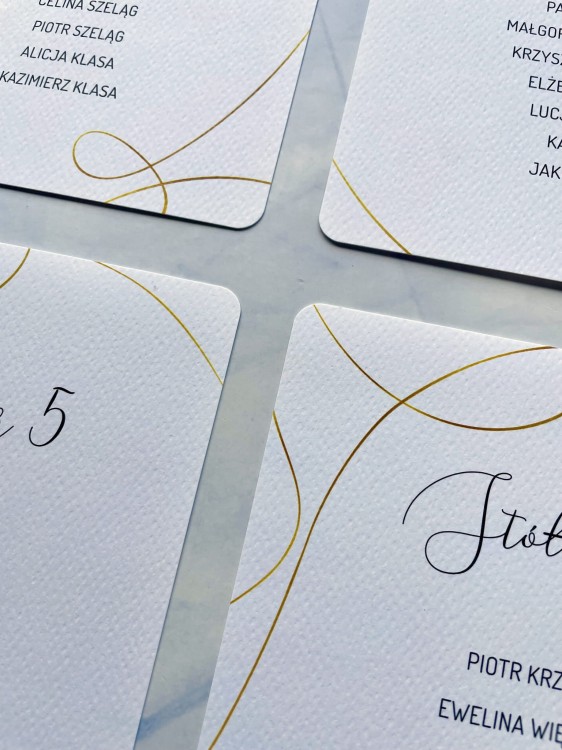 CELINA SZELĄG
PIOTR SZELĄG
ALICJA KLASA
KAZIMIERZ KLASA
PA
MAŁGOR
KRZYSZ
ELŻB
LUCJ
KA
JAK
5
Stół
PIOTR KRZ
EWELINA WIE